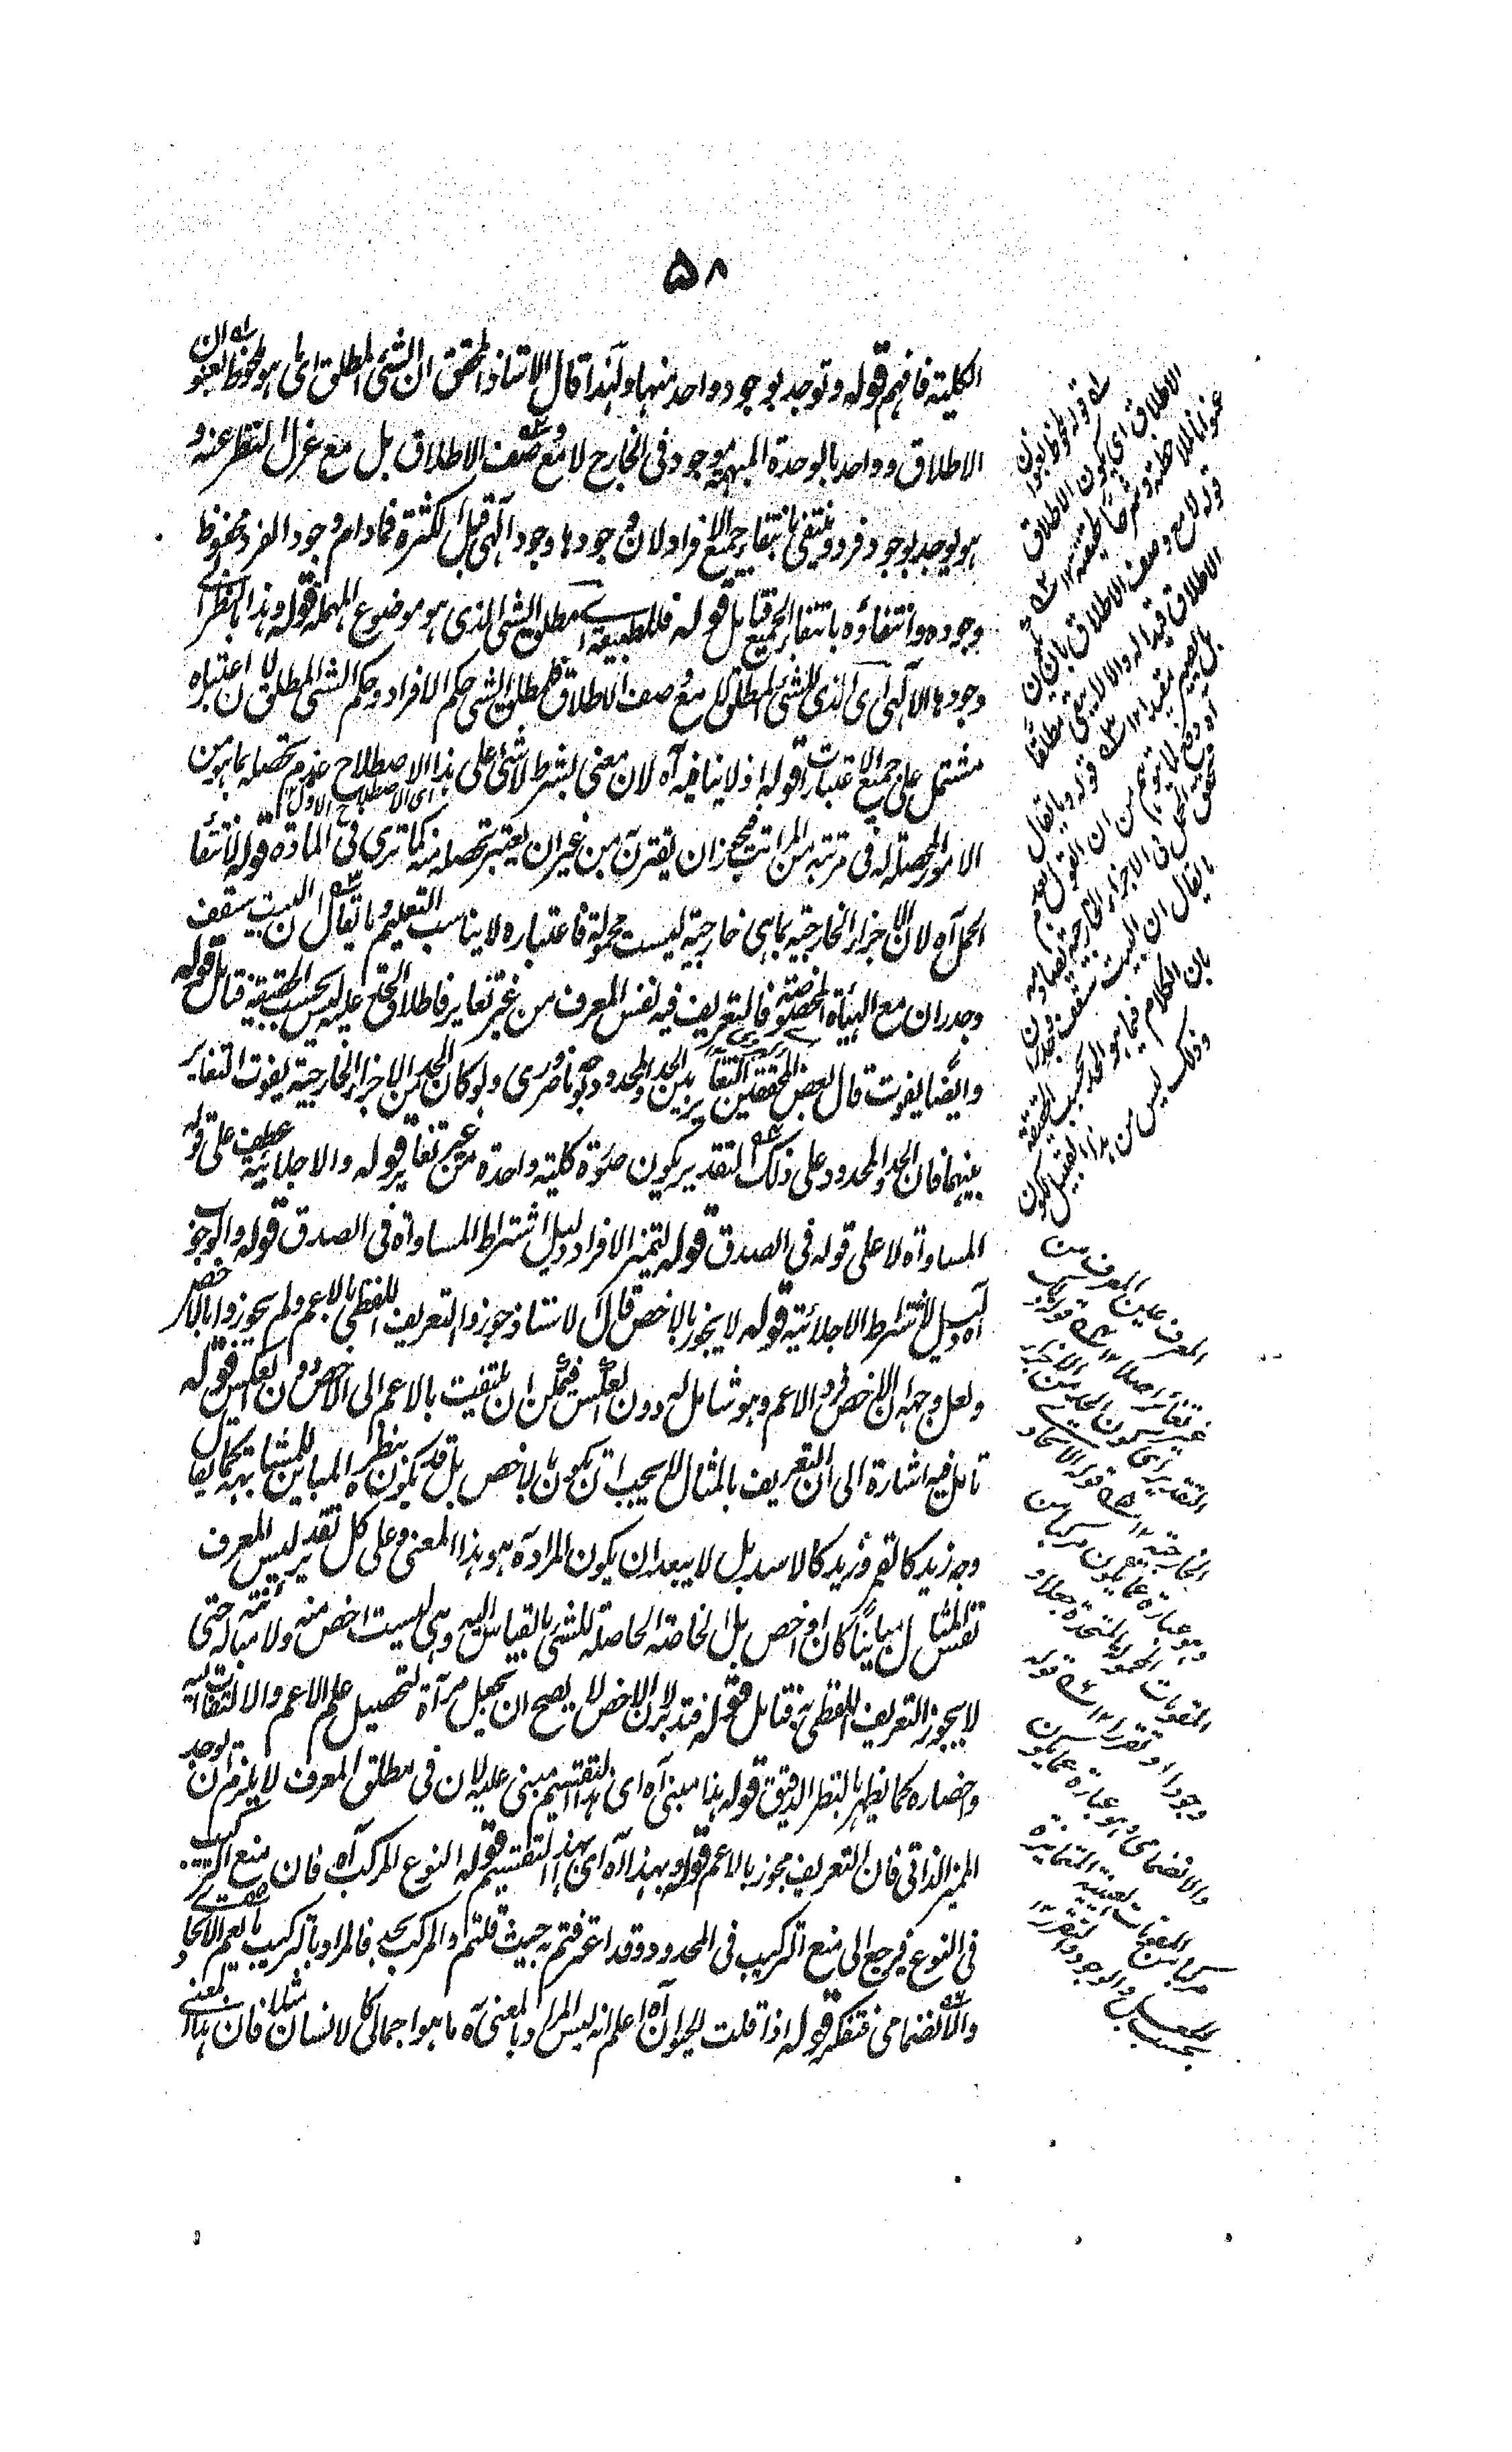 ۵۸
الكلية فافهم قوله وتوجد بوجود واحد منها ولهذا قال الاستاذ المحقق ان الشئ المطلق اى ما هو ملحوظ بعنوان
الاطلاق وواحد بالوحدة المبهمة موجود فى الخارج لا مع وصف الاطلاق بل مع عزل النظر عنه و
هو يوجد بوجود فرد وينتفى بانتفاء جميع الافراد لان وجودها وجود الٰهى قبل الكثرة فما دام وجود الفرد محفوظ
وجوده وانتفاؤه بانتفاء الجميع فتامل قوله فللطبيعة اے مطلق الشئ الذى هو موضوع المهملة قوله وهذا بالنظر اے
وجودها الالٰهى اى الذى للشئ المطلق لا مع وصف الاطلاق فلمطلق الشئ حكم الافراد وحكم الشئ المطلق لان اعتباره
مشتمل على جميع الاعتبارات قوله اذ لا ينافيه آه لان معنى بشرط لا شئ على هذا الاصطلاح عدم تحصله بما هو من
اى الاصطلاح الاول
الامور المحصلة له فى مرتبة من المراتب فيجوز ان يقترن من غير ان يعتبر تحصله منه كما ترى فى المادة قوله لانتفاء
الحمل آه لان الاجزاء الخارجية بما هى خارجية ليست محمولة فاعتباره لا يناسب التعليم وما يقال ان البيت سقف
وجدران مع الهيأة المخصوصة فالتعريف فيه نفس المعرف من غير تغاير فاطلاق الحد عليه ليس بحسب الحقيقة فتامل قوله
وايضا يفوت قال بعض المحققين التغاير بين الحد والمحدود بوجه ما ضرورى ولو كان الحد من الاجزاء الخارجية يفوت التغاير
بينهما فان الحد والمحدود على ذلك التقدير يكون صورة كلية واحدة من غير تغاير قوله والاجلائية عطف على قوله
المساواة لا على قوله فى الصدق قوله لتميز الافراد دليل اشتراط المساواة فى الصدق قوله والوجوز
آه دليل لاشتراط الاجلائية قوله لا يجوز بالاخص قال الاستاذ جوزوا التعريف اللفظى بالاعم ولم يجوزوا بالاخص
ولعل وجهه ان الاخص فرد الاعم وهو شامل له دون العكس فيمكن ان يلتفت بالاعم الى الاخص دون العكس قوله
تامل فيه اشارة الى ان التعريف بالمثال لا يجب ان يكون بالاخص بل قد يكون بنظراه المباين للمشابهة كما يقال
وجه زيد كالقمر وزيد كالاسد بل لا يبعد ان يكون المراد آه هو هذا المعنى وعلى كل تقدير ليس المعرف
نفس المثال مباينا كان او اخص بل الخاصة الحاصلة للشئ بالقياس اليه وهى ليست اخص منه ولا مباينة له حتى
لا يجوز التعريف اللفظى به فتامل قوله فتدبر لان الاخص لا يصح ان يجعل مرآة لتحصيل علم الاعم والالتفات اليه
واحضاره كما يظهر بالنظر الدقيق قوله هذا مبنى آه اى هذا التقسيم مبنى عليه لان فى مطلق المعرف لا يلزم ان يوجد
المميز الذاتى فان التعريف مجوز بالاعم قوله وبهذا آه اى بهذا التقسيم قوله النوع المركب آه فان منع التركيب
فى النوع يرجع الى منع التركيب فى المحدود وقد اعترفتم به حيث قلتم والمركب يحد فالمراد بالتركيب ما يعم الاتحادے
والانضمامى فتفكر قوله اذا قلت الحيوان آه اعلم انه ليس المراد بالمعنى آه ما هو اجمالى كالانسان مثلا فان هذا المعنى
سله قوله ملحوظ بعنوان
الاطلاق اى يكون الاطلاق
عنوانا لملاحظته وشرحا لحقيقته ۱۲
قوله لا مع وصف الاطلاق بان يكون
الاطلاق قيدا له والا لا يبقى مطلقا
بل يصير مقيدا ۱۲ قوله وما يقال
آه دفع لما يتوهم من ان القول بعدم
تحقق الحمل فى الاجزاء الخارجية يصادمه
ما يقال ان البيت سقف وجدران
بان الكلام فيما هو الحد بحسب الحقيقة
وذلك ليس من هذا القبيل لكون
المعرف عين المعرف من
غير تغاير اصلا ۱۲ قوله ذلك
التقدير اى كون الحد من الاجزاء
الخارجية ۱۲ قوله الاتحادے
وهو عبارة عما يكون مركبا من
المقومات المحمولة المتحدة جعلا و
وجودا وتقررا ۱۲ قوله
والانضمامى وهو عبارة عما يكون
مركبا من المقومات العينية المتمايزة
بحسب الجعل والوجود والتقرر ۱۲